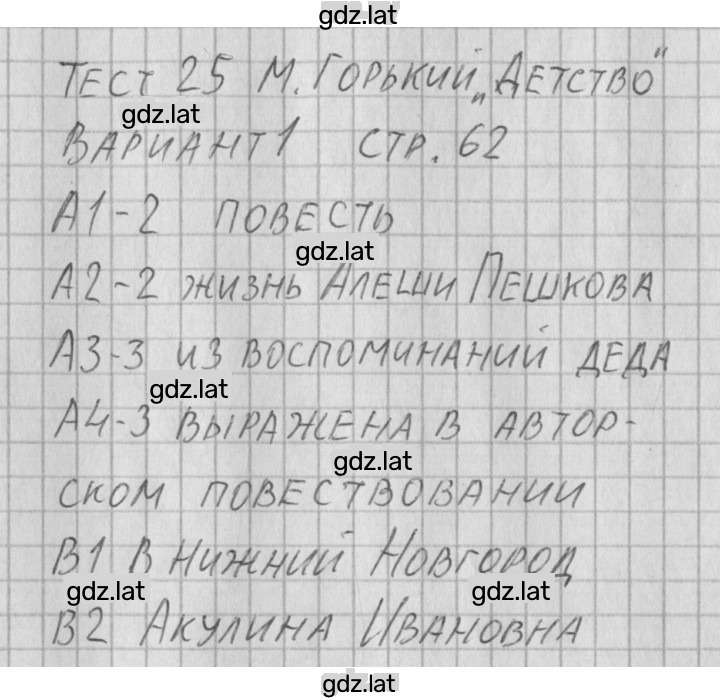 gdz.lat
Тест 25 М. Горький „Детство"
gdz.lat
Вариант 1 стр. 62
А1-2 повесть
gdz.lat
А2-2 жизнь Алеши Пешкова
А3-3 из воспоминаний деда
gdz.lat
А4-3 выражена в автор-
gdz.lat
ском повествовании
В1 в Нижний Новгород
gdz.lat gdz.lat
В2 Акулина Ивановна
gdz.lat